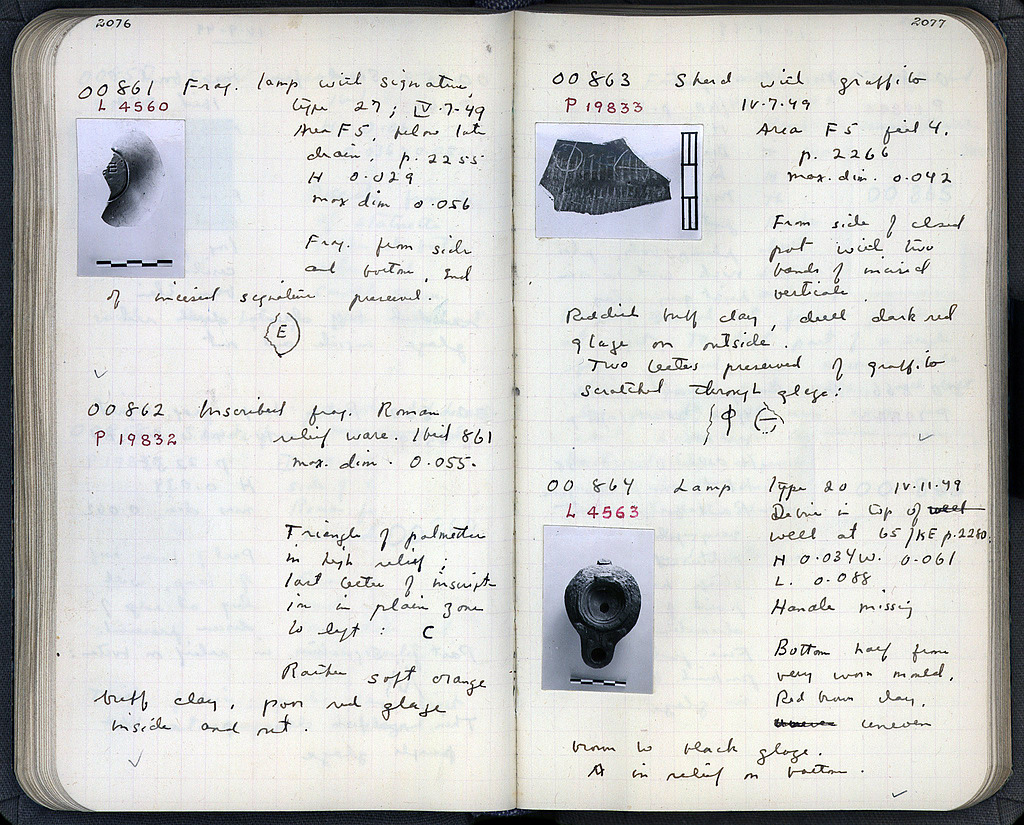 2076
OO 861 Frag. lamp with signature,
L 4560 type 27; IV-7-49
Area F5, below late
drain. p. 2255
H 0.029
max dim 0.056
Frag. from side
and bottom, end
of incised signature preserved.
E
OO 862 Inscribed frag. Roman
P 19832 relief ware. Ibid 861
max. dim. 0.055.
Triangle of palmettes
in high relief;
last letter of inscript
ion in plain zone
to left: C
Rather soft orange
buff clay, poor red glaze
inside and out.
2077
OO 863 Sherd with graffito
P 19833 IV-7-49
Area F5 4.
p. 2266
max. dim. 0.042
From side of closed
pot with two
bands of incised
verticals
Reddish buff clay, dull dark red
glaze on outside.
Two letters preserved of graffito
scratched through glaze:
Φ Θ
OO 864 Lamp Type 20 IV-11-49
L 4563 Debris in top of well
well at 65/KE p. 2280.
H 0.034 W. 0.061
L. 0.088
Handle missing
Bottom half from
very worn mould.
Red brown clay,
uneven
brown to black glaze.
A in relief on bottom.